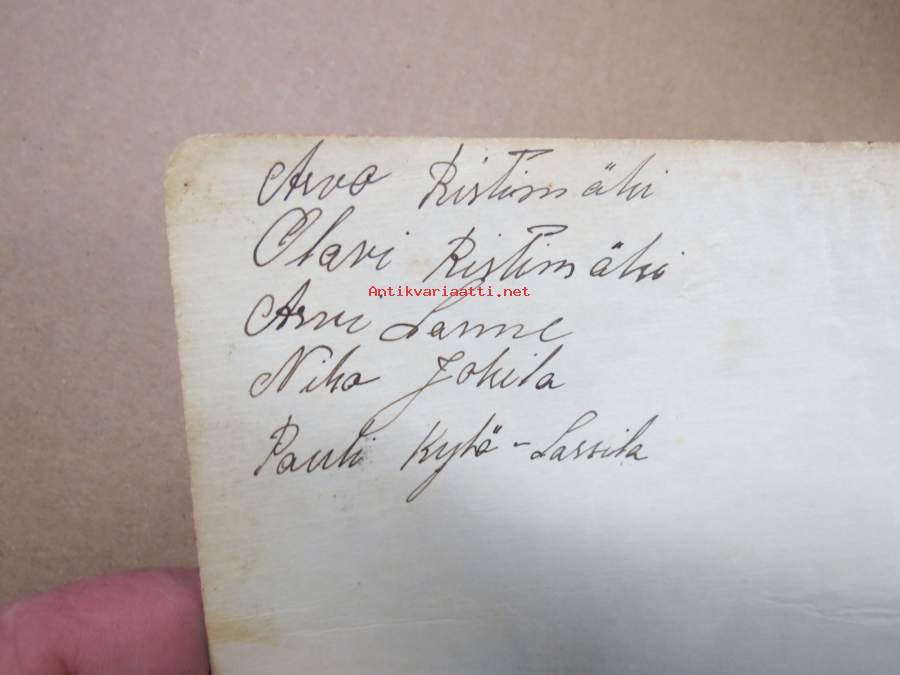 Arvo Ristimäki
Olavi Ristimäki
Antikvariaatti.net
Arvi Lanne
Niko Jokila
Pauli Kytö-Lassila